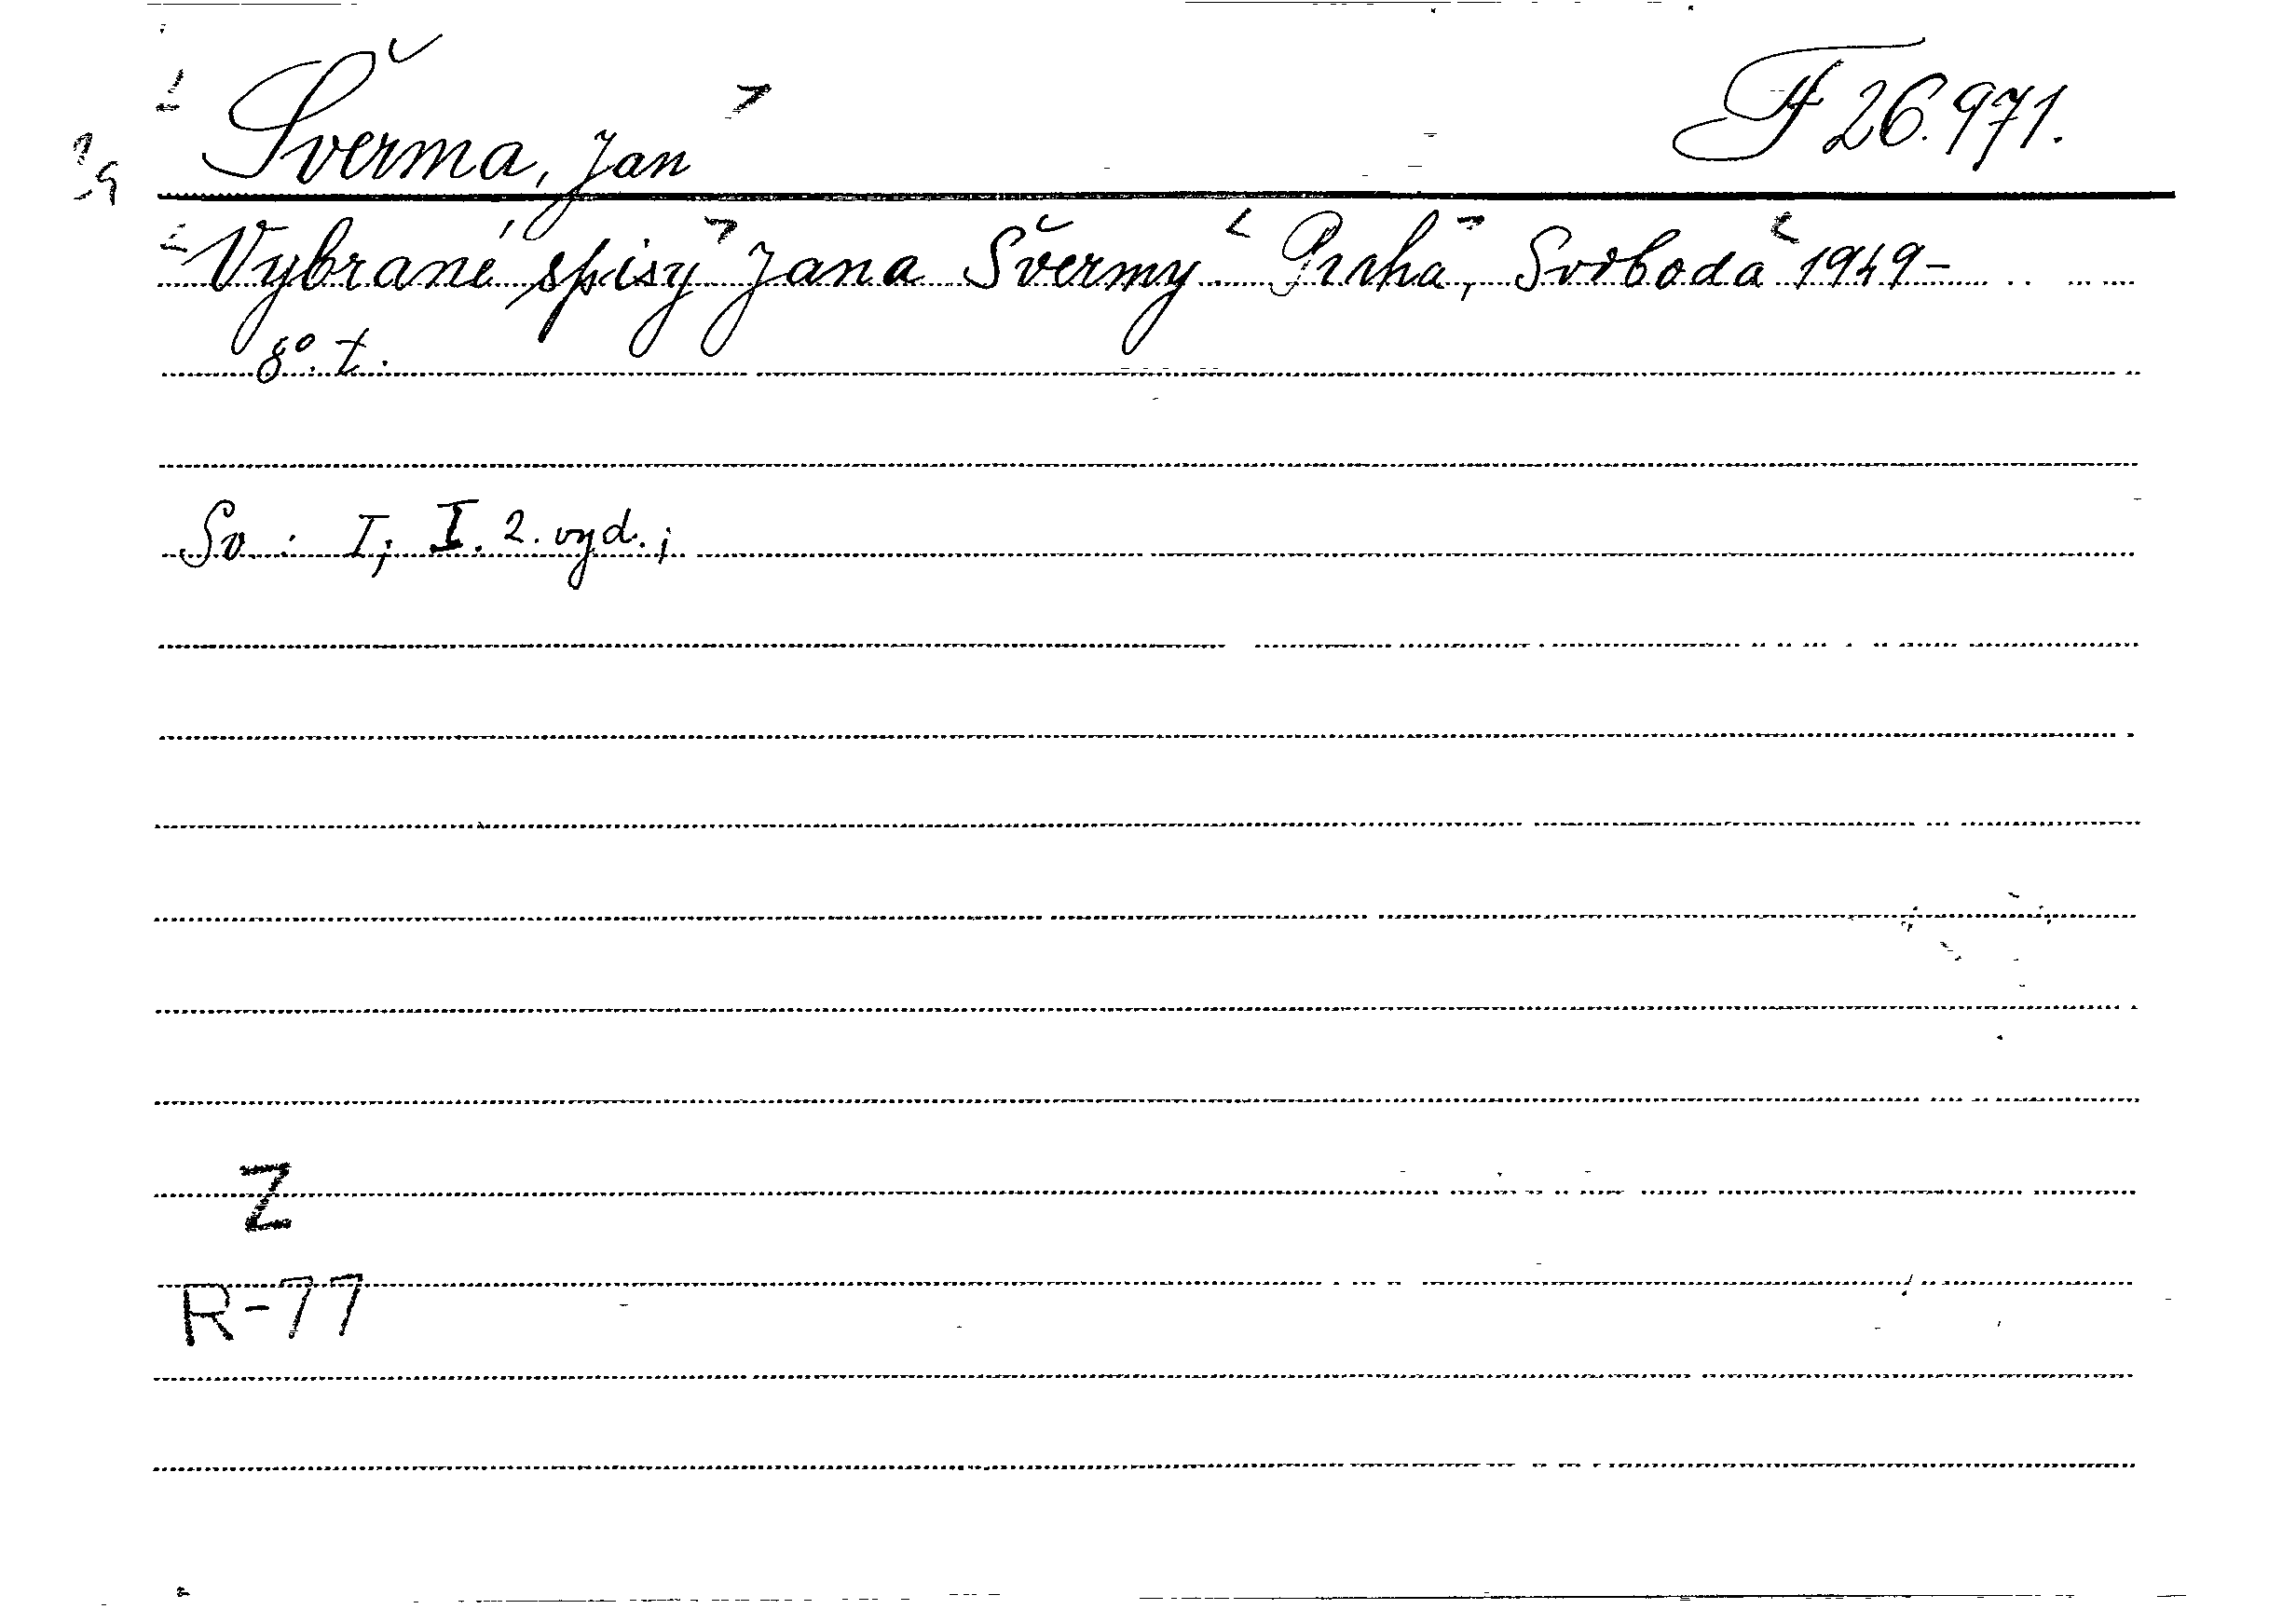 Šverma, Jan F 26.971.
Vybrané spisy Jana Švermy. Praha, Svoboda 1949-
8°. t.
Sv.: I; I. 2. vyd.;
Z
R-77